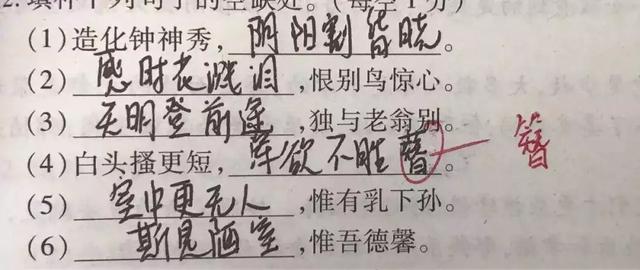 2.填补下列句子的空缺处。(每空1分)
(1)造化钟神秀,阴阳割昏晓。
(2)感时花溅泪,恨别鸟惊心。
(3)天明登前途,独与老翁别。
(4)白头搔更短,浑欲不胜簪。簪
(5)室中更无人,惟有乳下孙。
(6)斯是陋室,惟吾德馨。